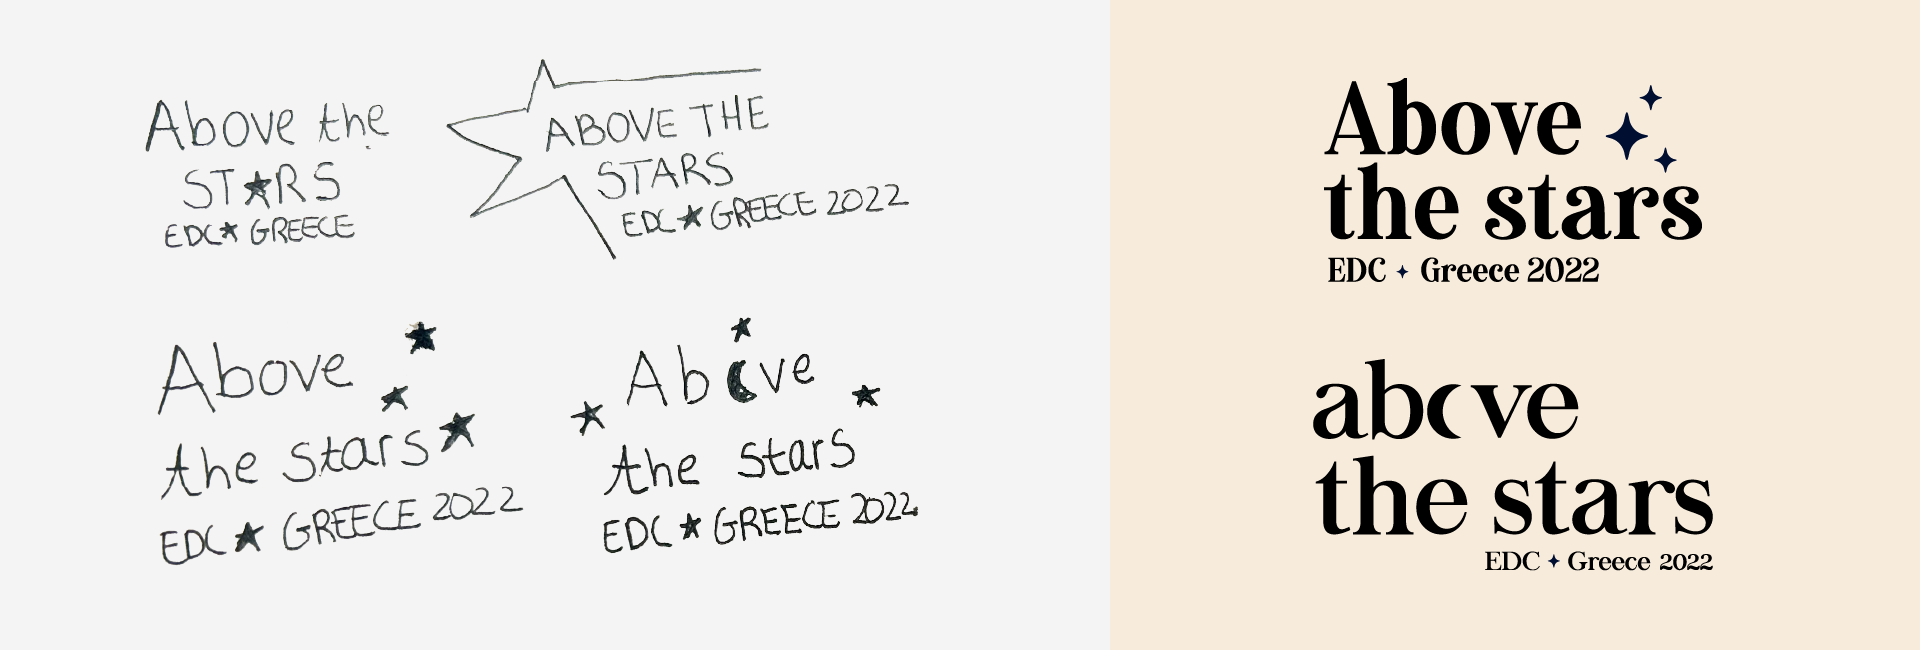 Above the
ST★RS
EDC★GREECE
ABOVE THE
STARS
EDC★GREECE 2022
Above
the stars
EDC★GREECE 2022
Ab☾ve
the stars
EDC★GREECE 2022
Above
the stars
EDC ✦ Greece 2022
ab☾ve
the stars
EDC ✦ Greece 2022